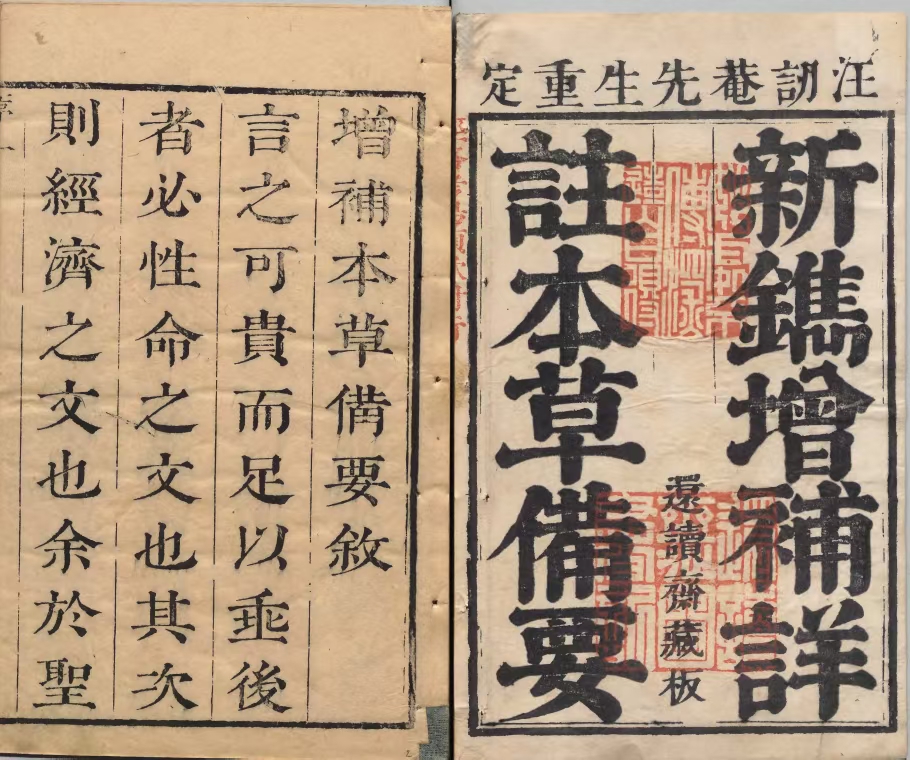 汪訒菴先生重定
新鐫增補詳
註本草備要
還讀齋藏板
增補本草備要敘
言之可貴而足以垂後
者必性命之文也其次
則經濟之文也余於聖